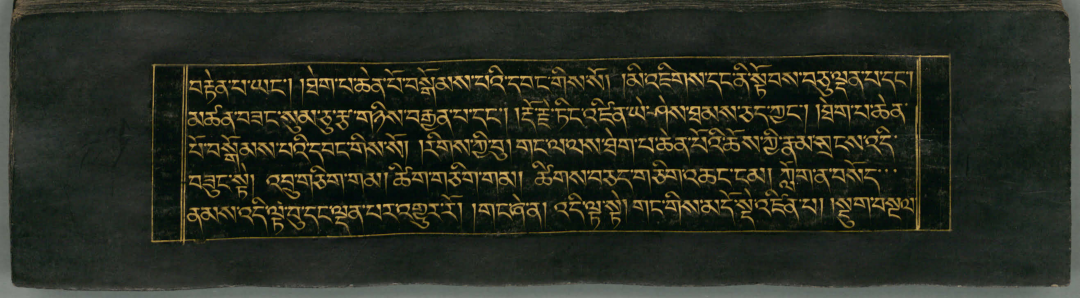 བརྟེན་པ་ཡང་། །ཐེག་པ་ཆེན་པོ་བསྒོམས་པའི་དབང་གིས་སོ། །མི་འཇིགས་དང་ནི་སྟོབས་བཅུ་ལྡན་པ་དང་།
མཚན་བཟང་སུམ་ཅུ་རྩ་གཉིས་བརྒྱན་པ་དང་། །རྡོ་རྗེ་ཏིང་འཛིན་ཡེ་ཤེས་ཐམས་ཅད་ཀྱང་། །ཐེག་པ་ཆེན་
པོ་བསྒོམས་པའི་དབང་གིས་སོ། །རིགས་ཀྱི་བུ། གང་ལ་ལས་ཐེག་པ་ཆེན་པོའི་ཆོས་ཀྱི་རྣམ་གྲངས་འདི་
བཟུང་སྟེ། འབྲུ་གཅིག་གམ། ཚིག་གཅིག་གམ། ཚིགས་བཅད་གཅིག་འཆང་ངམ། ཀློག་ན་བསོད་
ནམས་འདི་ལྟ་བུ་དང་ལྡན་པར་འགྱུར་རོ། །གང་ཞེ་ན། འདི་ལྟ་སྟེ། གང་གིས་མདོ་སྡེ་འཛིན་པ། །སྡུག་བསྔལ་